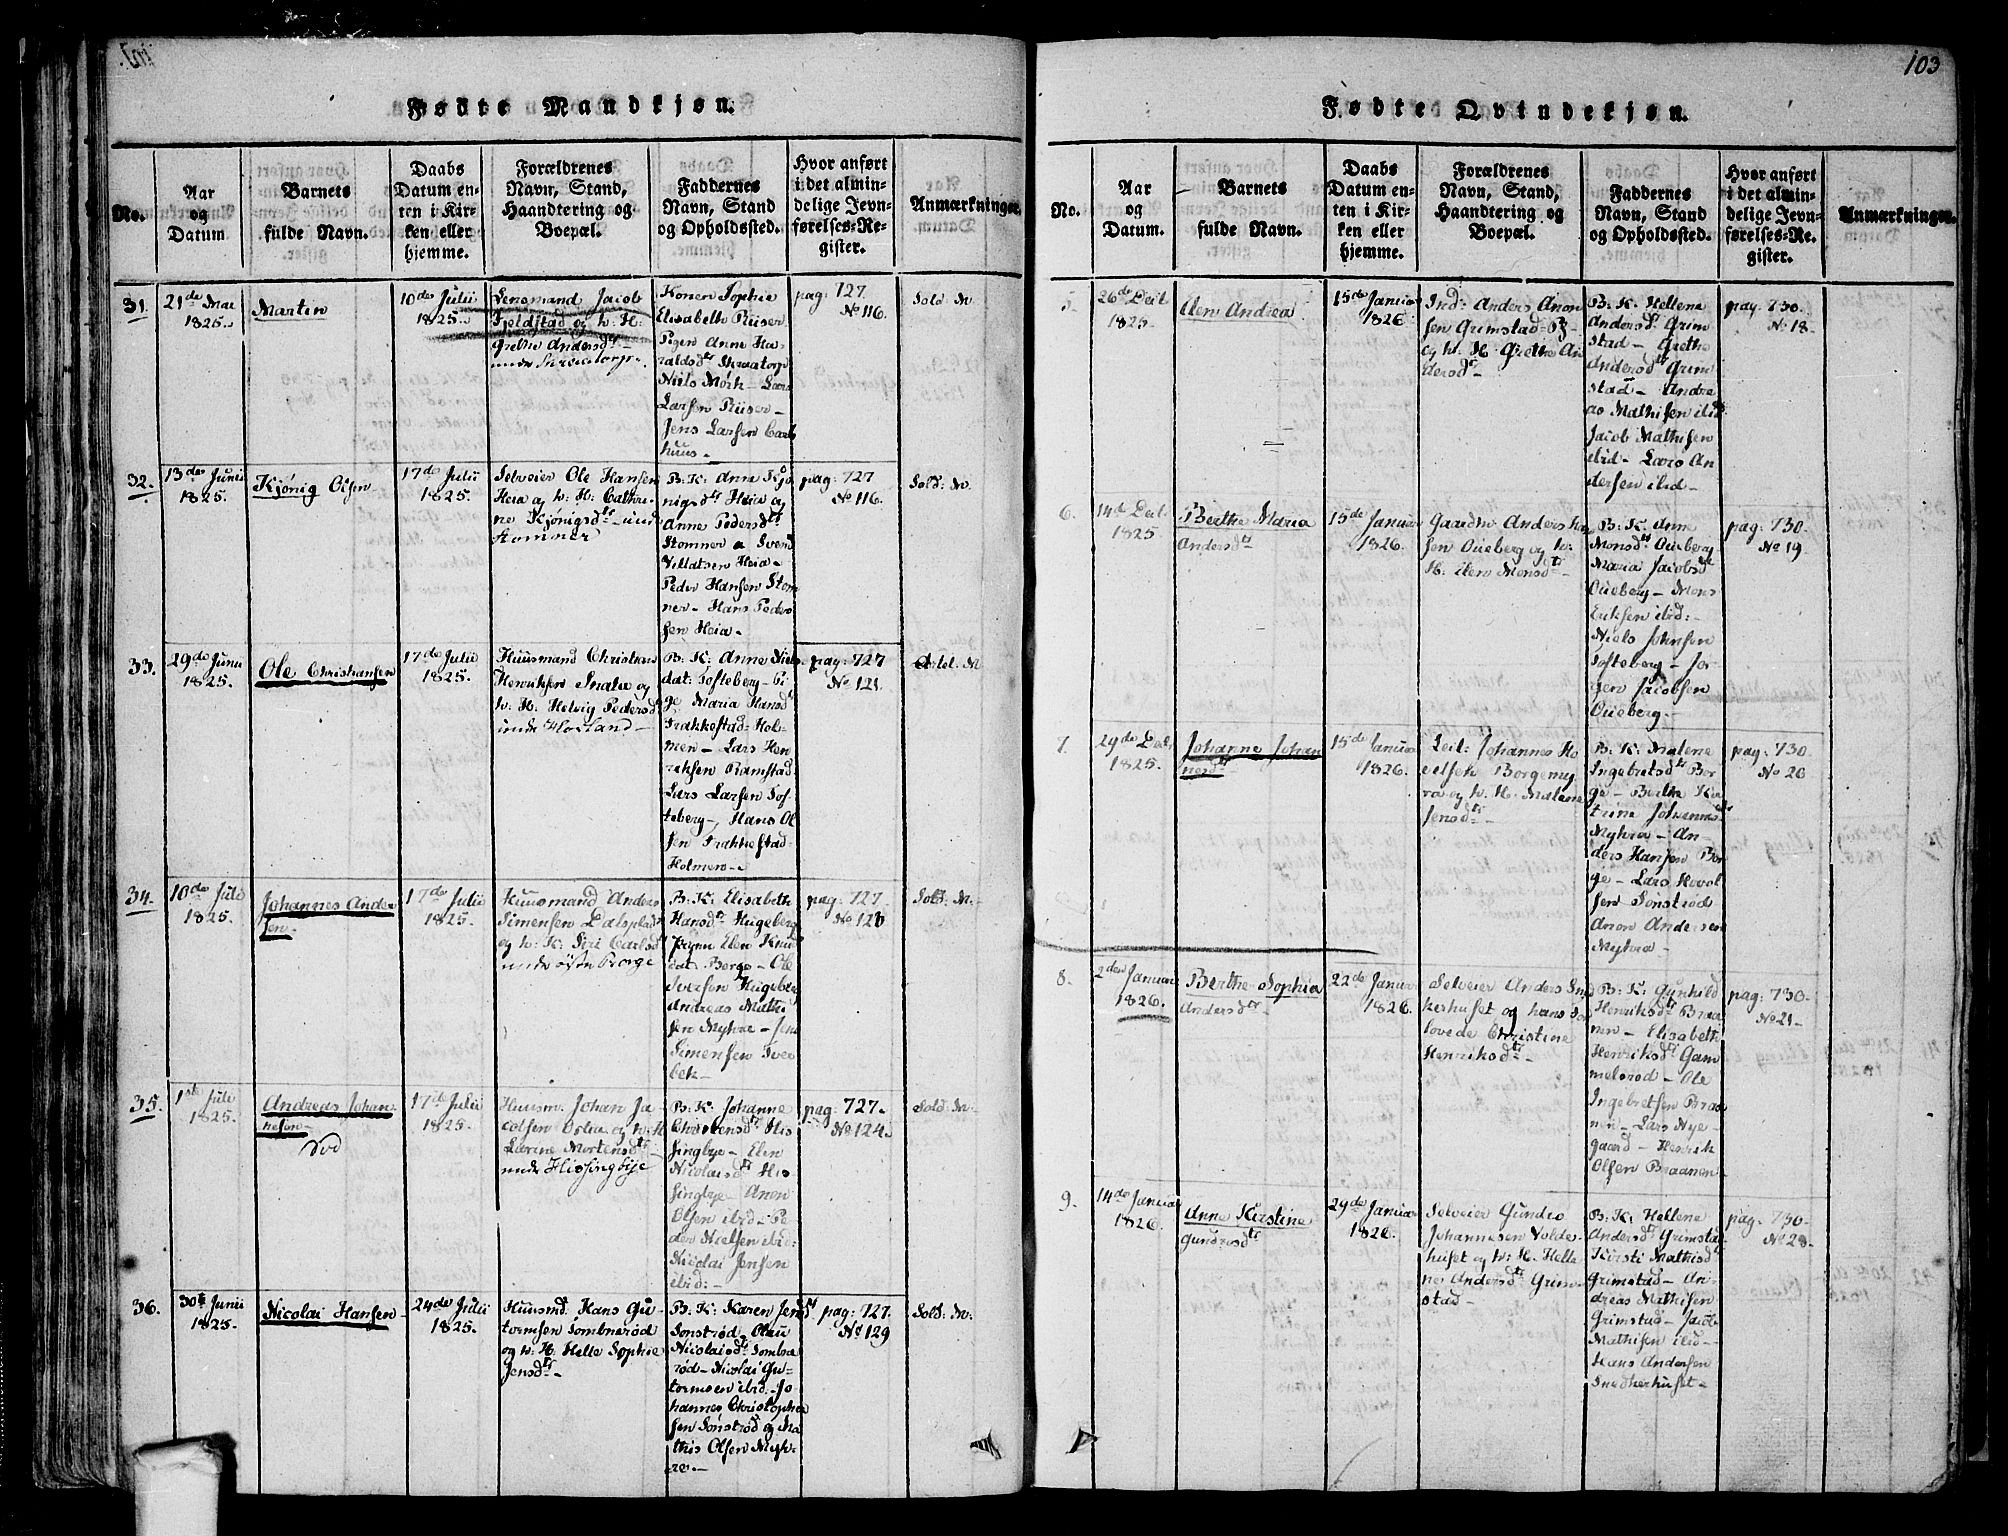 103
Fødte Mandkjøn.
No.
Aar
og
Datum
Barnets
fulde Navn.
Daabs
Datum en-
ten i Kir-
ken eller
hjemme.
Forældrenes
Navn, Stand,
Haandtering og
Boepæl.
Faddernes
Navn, Stand
og Opholdssted.
Hvor anført
i det almin-
delige Jevn-
førelses-Re-
gister.
Anmærkninger.
31.
21de Mai
1825.
Martin
10de Julii
1825.
Lensmand Jacob
Fjeldstad og h: H:
Grethe Andersd
unde
Konen Sophie
Elisabeth Riiser
Pigen Anne Ha-
raldsdtr
Niels Mørk - Lars
Larsen Riiser -
Jens Larsen Carls
huus -
pag: 727
No 116.
Sold. N.
32.
13de Junii
1825.
Kjønig Olsen
17de Julii
1825.
Selveier Ole Hansen
Heia og h: H: Cathri-
ne Kjønigsdtr unde
Stomner
B: K: Anne Kjø
nigsdtr Heia og
Anne Pedersdtr
Stomner Svend
Heia -
Peder Hansen Stom
ner - Hans Peder
sen Heia -
pag: 727
No 116.
Sold: N.
33.
29de Junii
1825.
Ole Christiansen
17de Julii
1825.
Huusmand Christian
Henriksen og
h: H: Helvig Pedersd
unde
B: K: Anne Niels
dat: Tofteberg - Pi
ge Maria Hansd
Trakkestad - Hol-
men - Lars Hen
riksen Ramstad
Lars Larsen Tof
teberg - Hans Ol
sen Trakkestad
Holmen -
pag: 727
No 121.
N
34.
10de Julii
1825.
Johannes Ander
sen -
17de Julii
1825.
Huusmand Anders
Simensen Dalsplads
og h: K: Siri Carlsd
unde østre Borge
B: K: Elisabeth
Hansdtr Hugeberg
Elen Knu
dat: Borge - Ole
Iversen Hugeber
Andreas Mathi
sen Myhre - Jens
Simensen Tvee
bek -
pag: 727.
No 123
Sold: N. -
35.
1ste Julii
1825.
Andreas Johan
nesen
Død
17de Julii
1825.
Huusm: Johan Ja-
cobsen og h: H
Larine Mortensdtr
unde Hissingbye
B: K: Johanne
His
singbye - Elen
Nicolaisdtr His
singbye - Anon
Olsen ibid - Pe-
der Nielsen ibid:
Nicolai Jensen
ibid: -
pag: 727.
No 124.
Sold: N. -
36.
30te Junii
1825.
Nicolai Hansen -
24de Julii
1825.
Huusmd: Hans Gu-
tormsen Sombnerød
og h: H: Helle Sophie
Jensdtr -
B: K: Karen Jensd
Sonstrød - Olau
Nicolaisdtr Sombne
rød - Nicolai Gu-
tormsen ibid - Jo
hannes Christophe
sen Sonstrød og Ma
this Olsen Myh-
re -
pag: 727.
No 129
Sold: N.
Fødte Qvindekjøn.
No.
Aar
og
Datum.
Barnets
fulde Navn.
Daabs
Datum en-
ten i Kir-
ken eller
hjemme.
Forældrenes
Navn, Stand,
Haandtering og
Boepæl.
Faddernes
Navn, Stand
og Opholdssted.
Hvor anført
i det almin-
delige Jevn-
førelses-Re-
gister.
Anmærkninger.
5.
26de Decl
1825.
Elen Andrea
15de Januar
1826
Ind: Anders Anon
sen Grimstad
og h: H: Grethe An
dersdtr -
B: K: Hellene
Andersdtr Grim
stad - Grethe
Andersdtr Grim
stad - Andre
as Mathisen ibid
Jacob Mathisen
ibid - Lars An
dersen ibid -
pag: 730.
No 18 -
6.
14de Decl
1825
Berthe Maria
Andersdtr
15de Januar
1826.
Gaardbr Anders
sen Oueberg og h:
H: Elen Monsdtr -
B: K: Anne
Monsdtr Oueberg
Maria Jacobsdtr
Oueberg - Mons
Eriksen ibid:
Niels Johnsen
Tofteberg - Jør
gen Jacobsen
Oueberg -
pag: 730.
No 19.
7.
29de Decl
1825.
Johanne Johan
nesdtr -
15de Januar
1826.
Leil: Johannes Ho
velsen Borgemy
ra og h: H: Malene
Jensdtr -
B: K: Malene
Ingebretsdtr Bor
ge - Berthe Ka
trine Johannesd
Myhra - An-
ders Hansen Bor
ge - Lars Hovel
sen Sonstrød
Anon Andersen
Myhra -
pag: 730
No 20
8.
2den Januar
1826.
Berthe Sophia
Andersdtr -
22de Januar
1826.
Selveier Anders Sned
kerhuset og hans For
lovede Christine
Henriksdtr -
B: K: Gunhild
Henriksdtr Braa
nen - Elisabeth
Henriksdtr Gam
melsrød - Ole
Ingebretsen Braa
nen - Lars Nye
gaard - Henrik
Olsen Braanen -
pag: 730 -
No 21 -
9.
14de Januar
1826.
Anne Kirstine
Gundersdtr
29de Januar
1826.
Selveier Gunder
Johannesen Volde-
huset og h: H: Helle
ne Andersdtr Grim-
stad -
B: K: Hellene
Andersdtr Grimstad
Kirsti Mathisd
Grimstad - An-
dreas Mathisen
Grimstad - Jacob
Mathisen ibid -
Hans Andersen
Snedkerhuset -
pag: 730 -
No 28 -